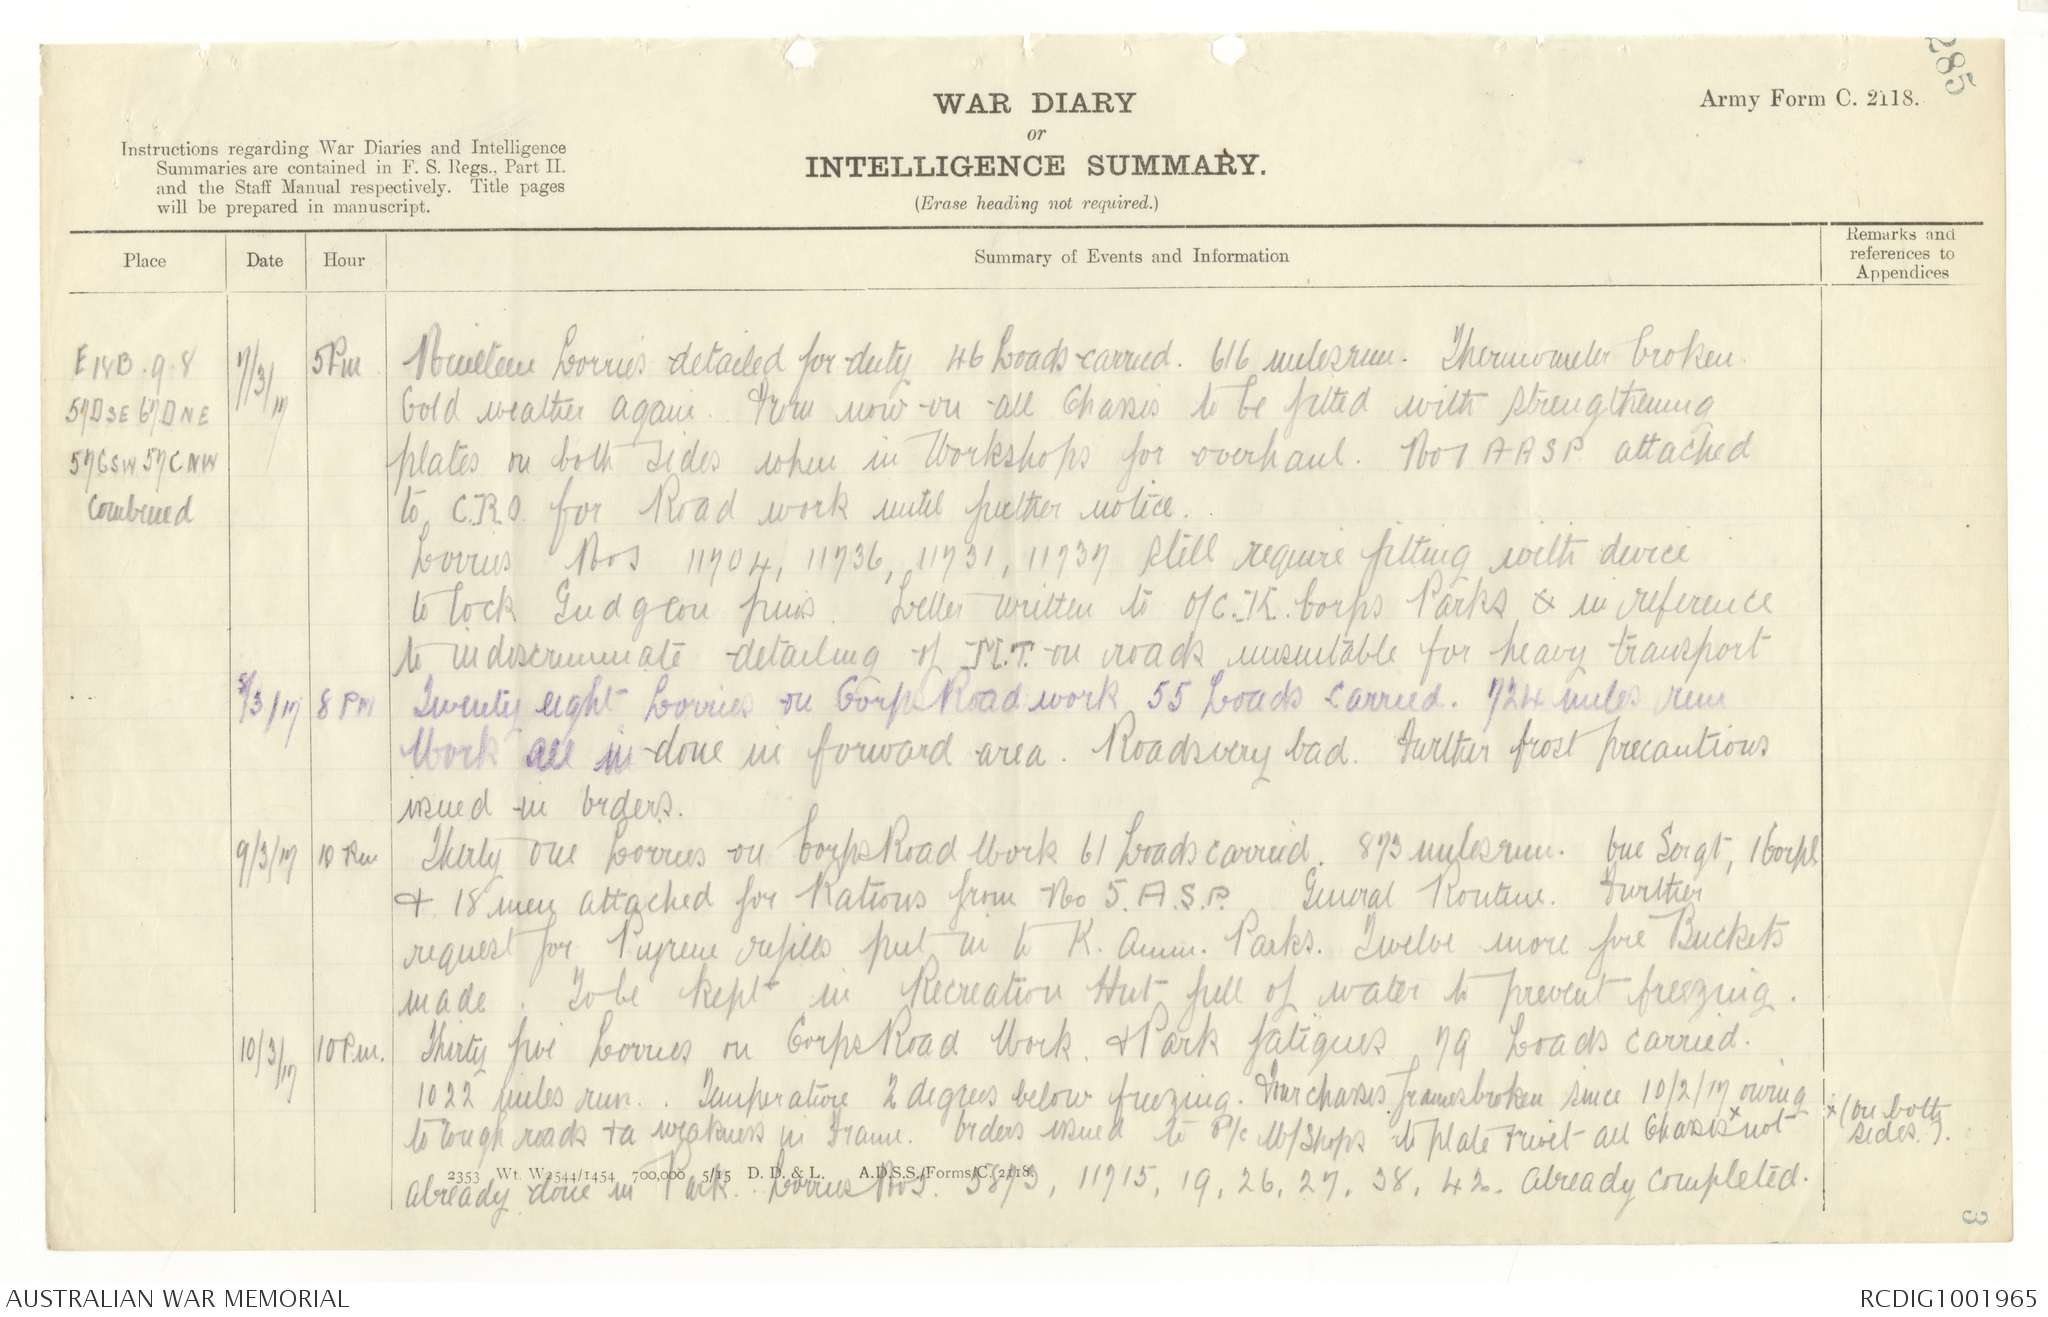 285
Army Form C. 2118.
WAR DIARY
or
INTELLIGENCE SUMMARY.
(Erase heading not required.)
Instructions regarding War Diaries and Intelligence
Summaries are contained in F. S. Regs., Part II.
and the Staff Manual respectively. Title pages
will be prepared in manuscript.
Place
Date
Hour
Summary of Events and Information
Remarks and
references to
Appendices
E18B.9.8
57D SE 67D NE
57C SW 57C NW
Combined
7/3/17 5 Pm Nineteen Lorries detailed for duty 46 Loads carried. 616 miles run. Thermometer broken.
Cold weather again. From now on all Chassis to be fitted with strengthening
plates on both sides when in Workshops for overhaul. No 1 A A S P attached
to C.R.O. for Road work until further notice.
Lorries Nos 11704, 11736, 11731, 11737 still require fitting with device
to lock Gudgeon pins. Letter written to O/C. K. Corps Parks & in reference
to indiscriminate detailing of M.T. on roads unsuitable for heavy transport
8/3/17 8 PM Twenty eight Lorries on Corps Road work 55 Loads carried. 724 miles run
Work all in done in forward area. Roads very bad. Further frost precautions
issued in orders.
9/3/17 10 Pm Thirty one Lorries on Corps Road Work 61 Loads carried. 873 miles run. One Sergt, 1 Corpl
& 18 men attached for Rations from No 5. A.S.P. General Routine. Further
request for Pyrene refills put in to K. Amm. Parks. Twelve more fire Buckets
made. To be kept in Recreation Hut full of water to prevent freezing.
10/3/17 10 P.m. Thirty five Lorries on Corps Road Work. & Park fatigues 79 Loads carried.
1022 miles run. . Temperature 2 degrees below freezing. Four chassis frames broken since 10/2/17 owing
to tough roads & a weakness in Frame. Orders issued to W/Shops to plate & rivet all Chassis x not
x (On both
sides.).
2353 Wt. W2544/1454 700,000 5/15 D. D. & L. A.D.S.S./Forms/C. 2118.
already done in Park. Lorries Nos. 5873, 11715, 19, 26, 27, 38, 42. Already completed.
3
AUSTRALIAN WAR MEMORIAL
RCDIG1001965